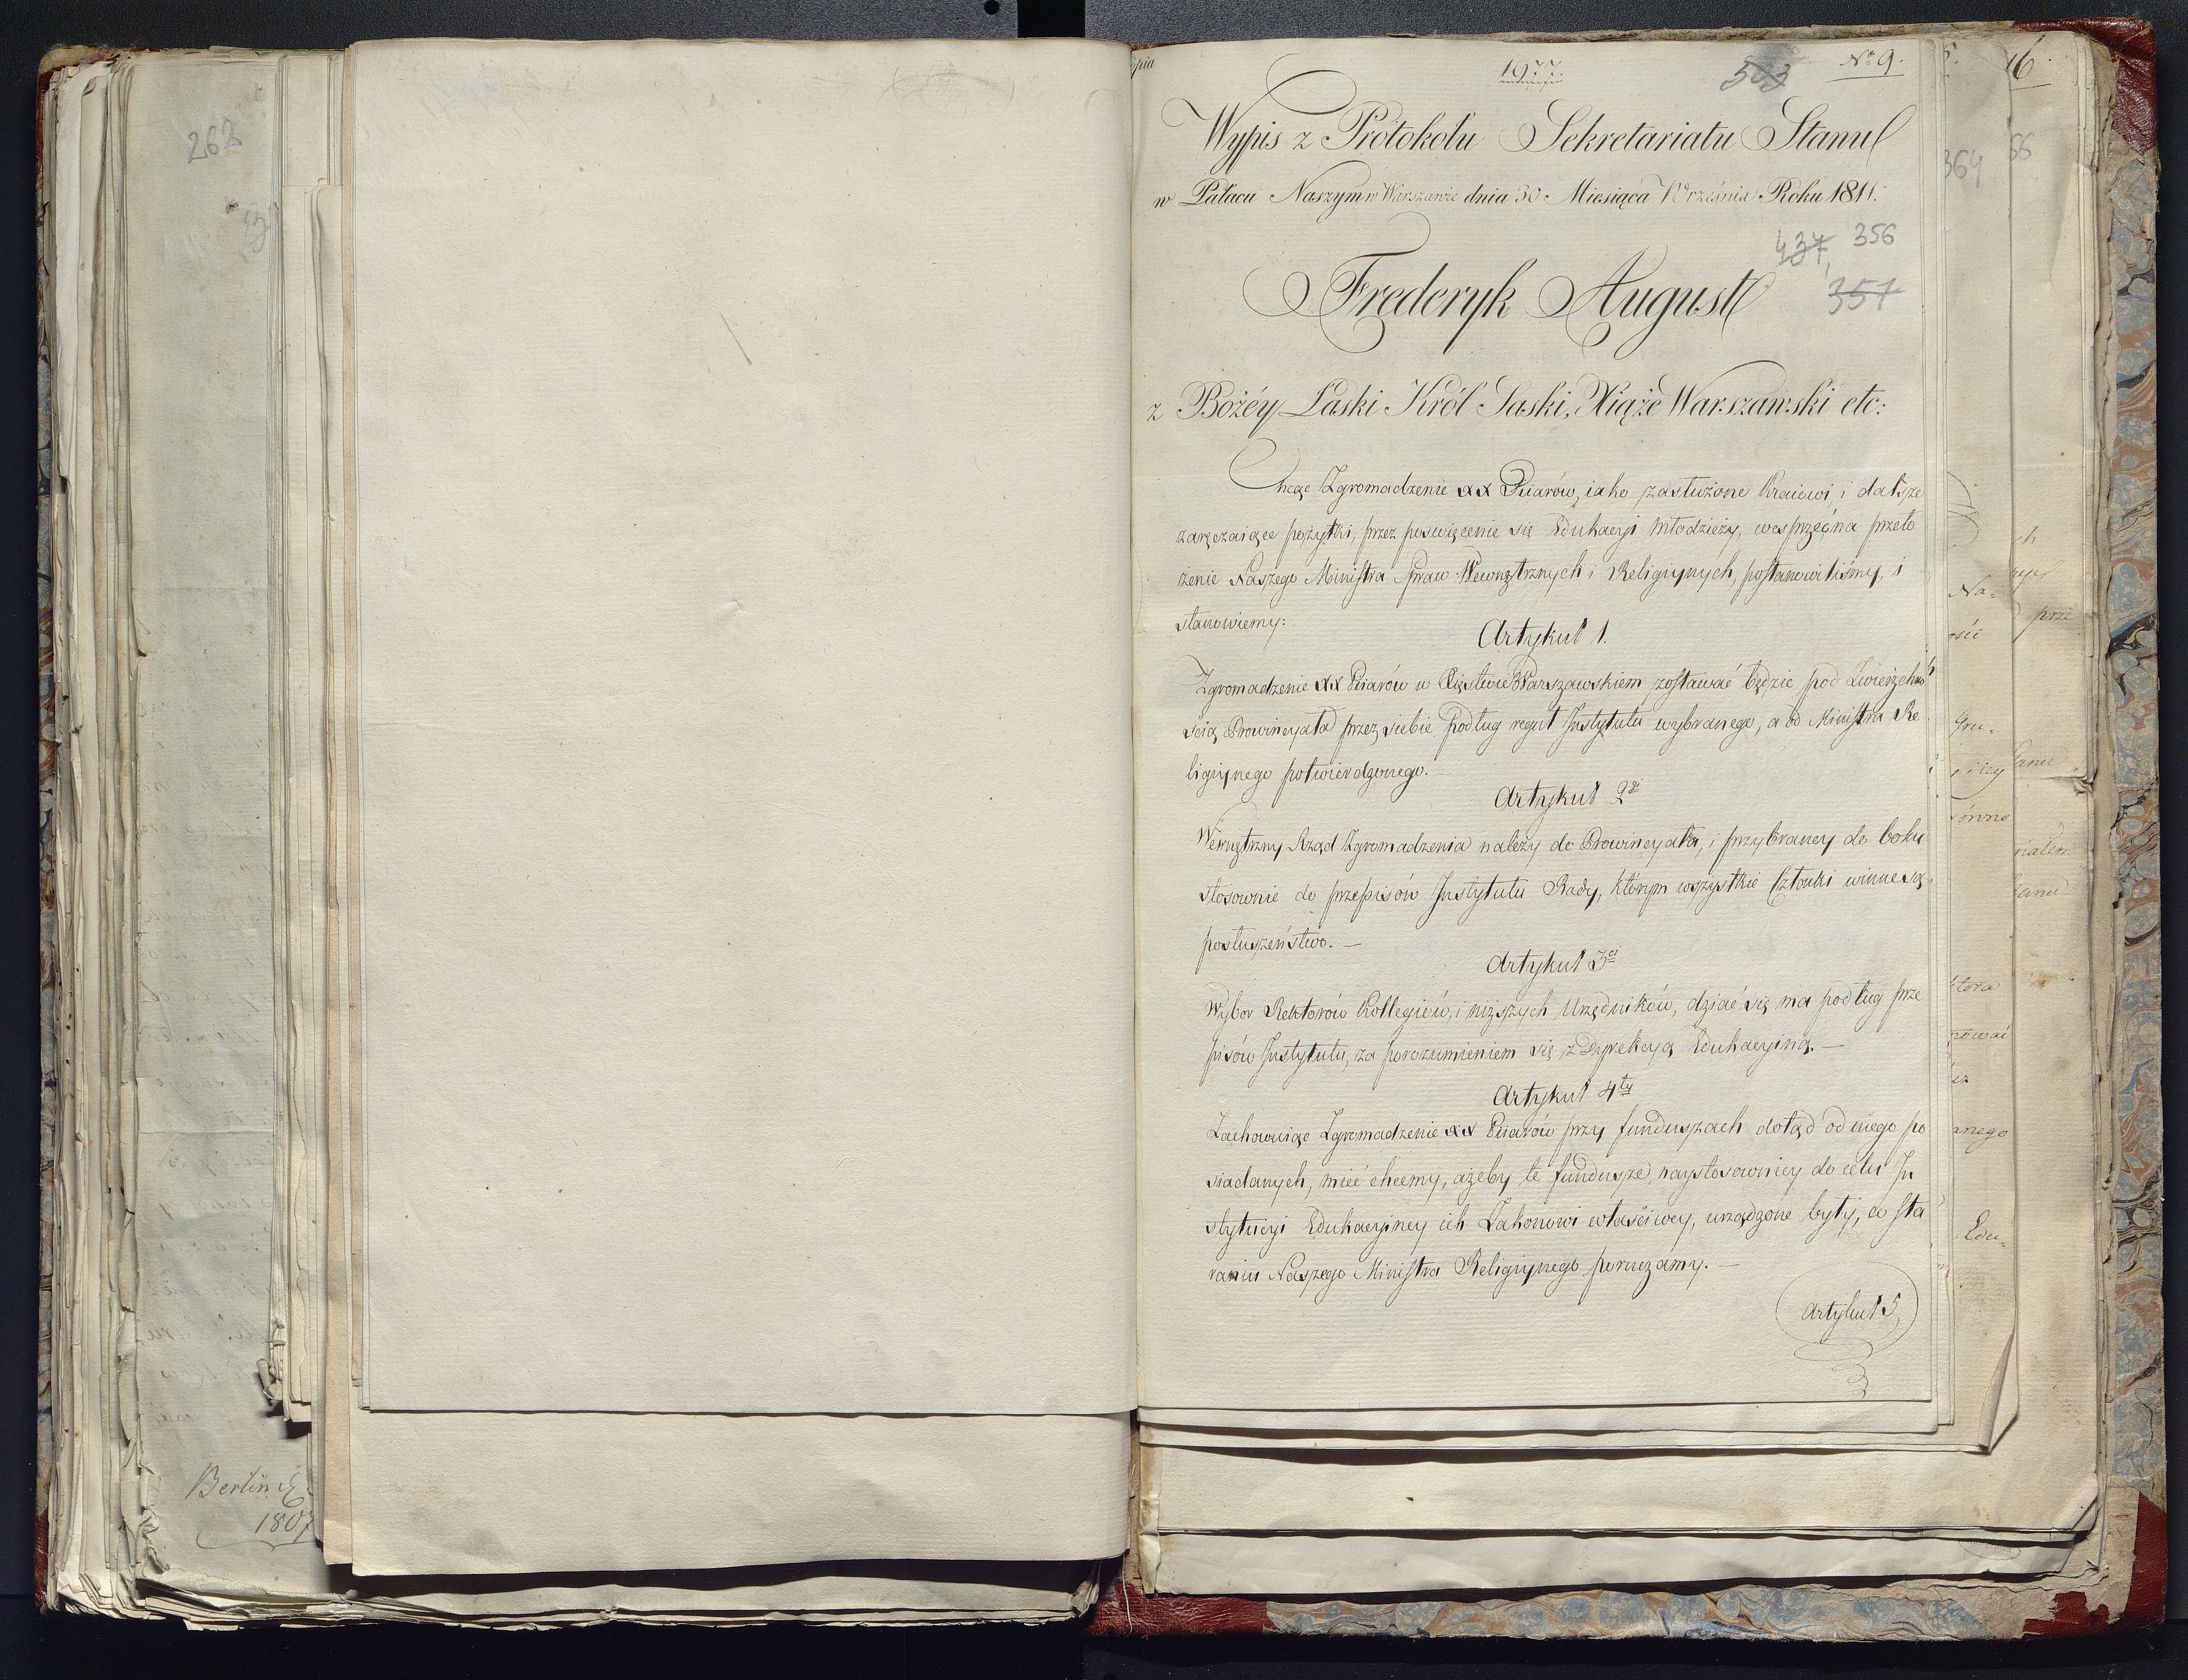 262
Berlin d
1807
opia
1977.
503
No 9.
Wypis z Protokołu Sekretariatu Stanu
w Pałacu Naszym w Warszawie dnia 30 Miesiąca Września Roku 1811.
437, 356
Frederyk August
357
z Bożéy Łaski Król Saski, Xiążę Warszawski etc:
Chcąc Zgromadzenie XX Piiarów, iako zasłużone Kraiowi, i dalsze
zaręczaiące pożytki, przez poswięcenie się Edukacyi Młodzieży, wesprzeć, na przeło
żenie Naszego Ministra Spraw Wewnętrznych i Religiynych, postanowiliśmy, i
stanowiemy:
Artykuł 1.
Zgromadzenie XX Piiarów w Xięstwie Warszawskiem zostawać będzie pod Zwierzchno
ścią Prowincyała przez siebie podług reguł Instytutu wybranego, a od Ministra Re
ligiynego potwierdzonego.
Artykuł 2gi
Wewnętrzny Rząd Zgromadzenia należy do Prowincyała, i przybraney do boku
stosownie do przepisów Instytutu Rady, którym wszystkie Członki winne są
posłuszeństwo. —
Artykuł 3ci
Wybor Rektorów Kollegiów, i niższych Urzędników, dziać się ma podług prze
pisów Instytutu, za porozumieniem się z Dyrekcyą Edukacyiną. —
Artykuł 4ty
Zachowuiąc Zgromadzenie XX Piiarów przy funduszach dotąd od niego po
siadanych, mieć chcemy, ażeby te fundusze, naystosowniey do celu In
stytucyi Edukacyiney ich Zakonowi właściwey, urządzone były, co sta
raniu Naszego Ministra Religiynego poruczamy. —
Artykuł 5
16.
364
56
ch
Na=
prze
ości
Gru=
i tey
anu
ówno
ktora
nować
anego
Edu=